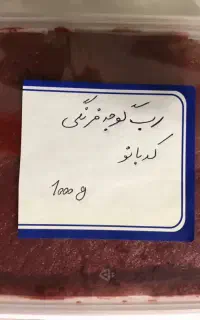 رب گوجه فرنگی
کدبانو
1000 g